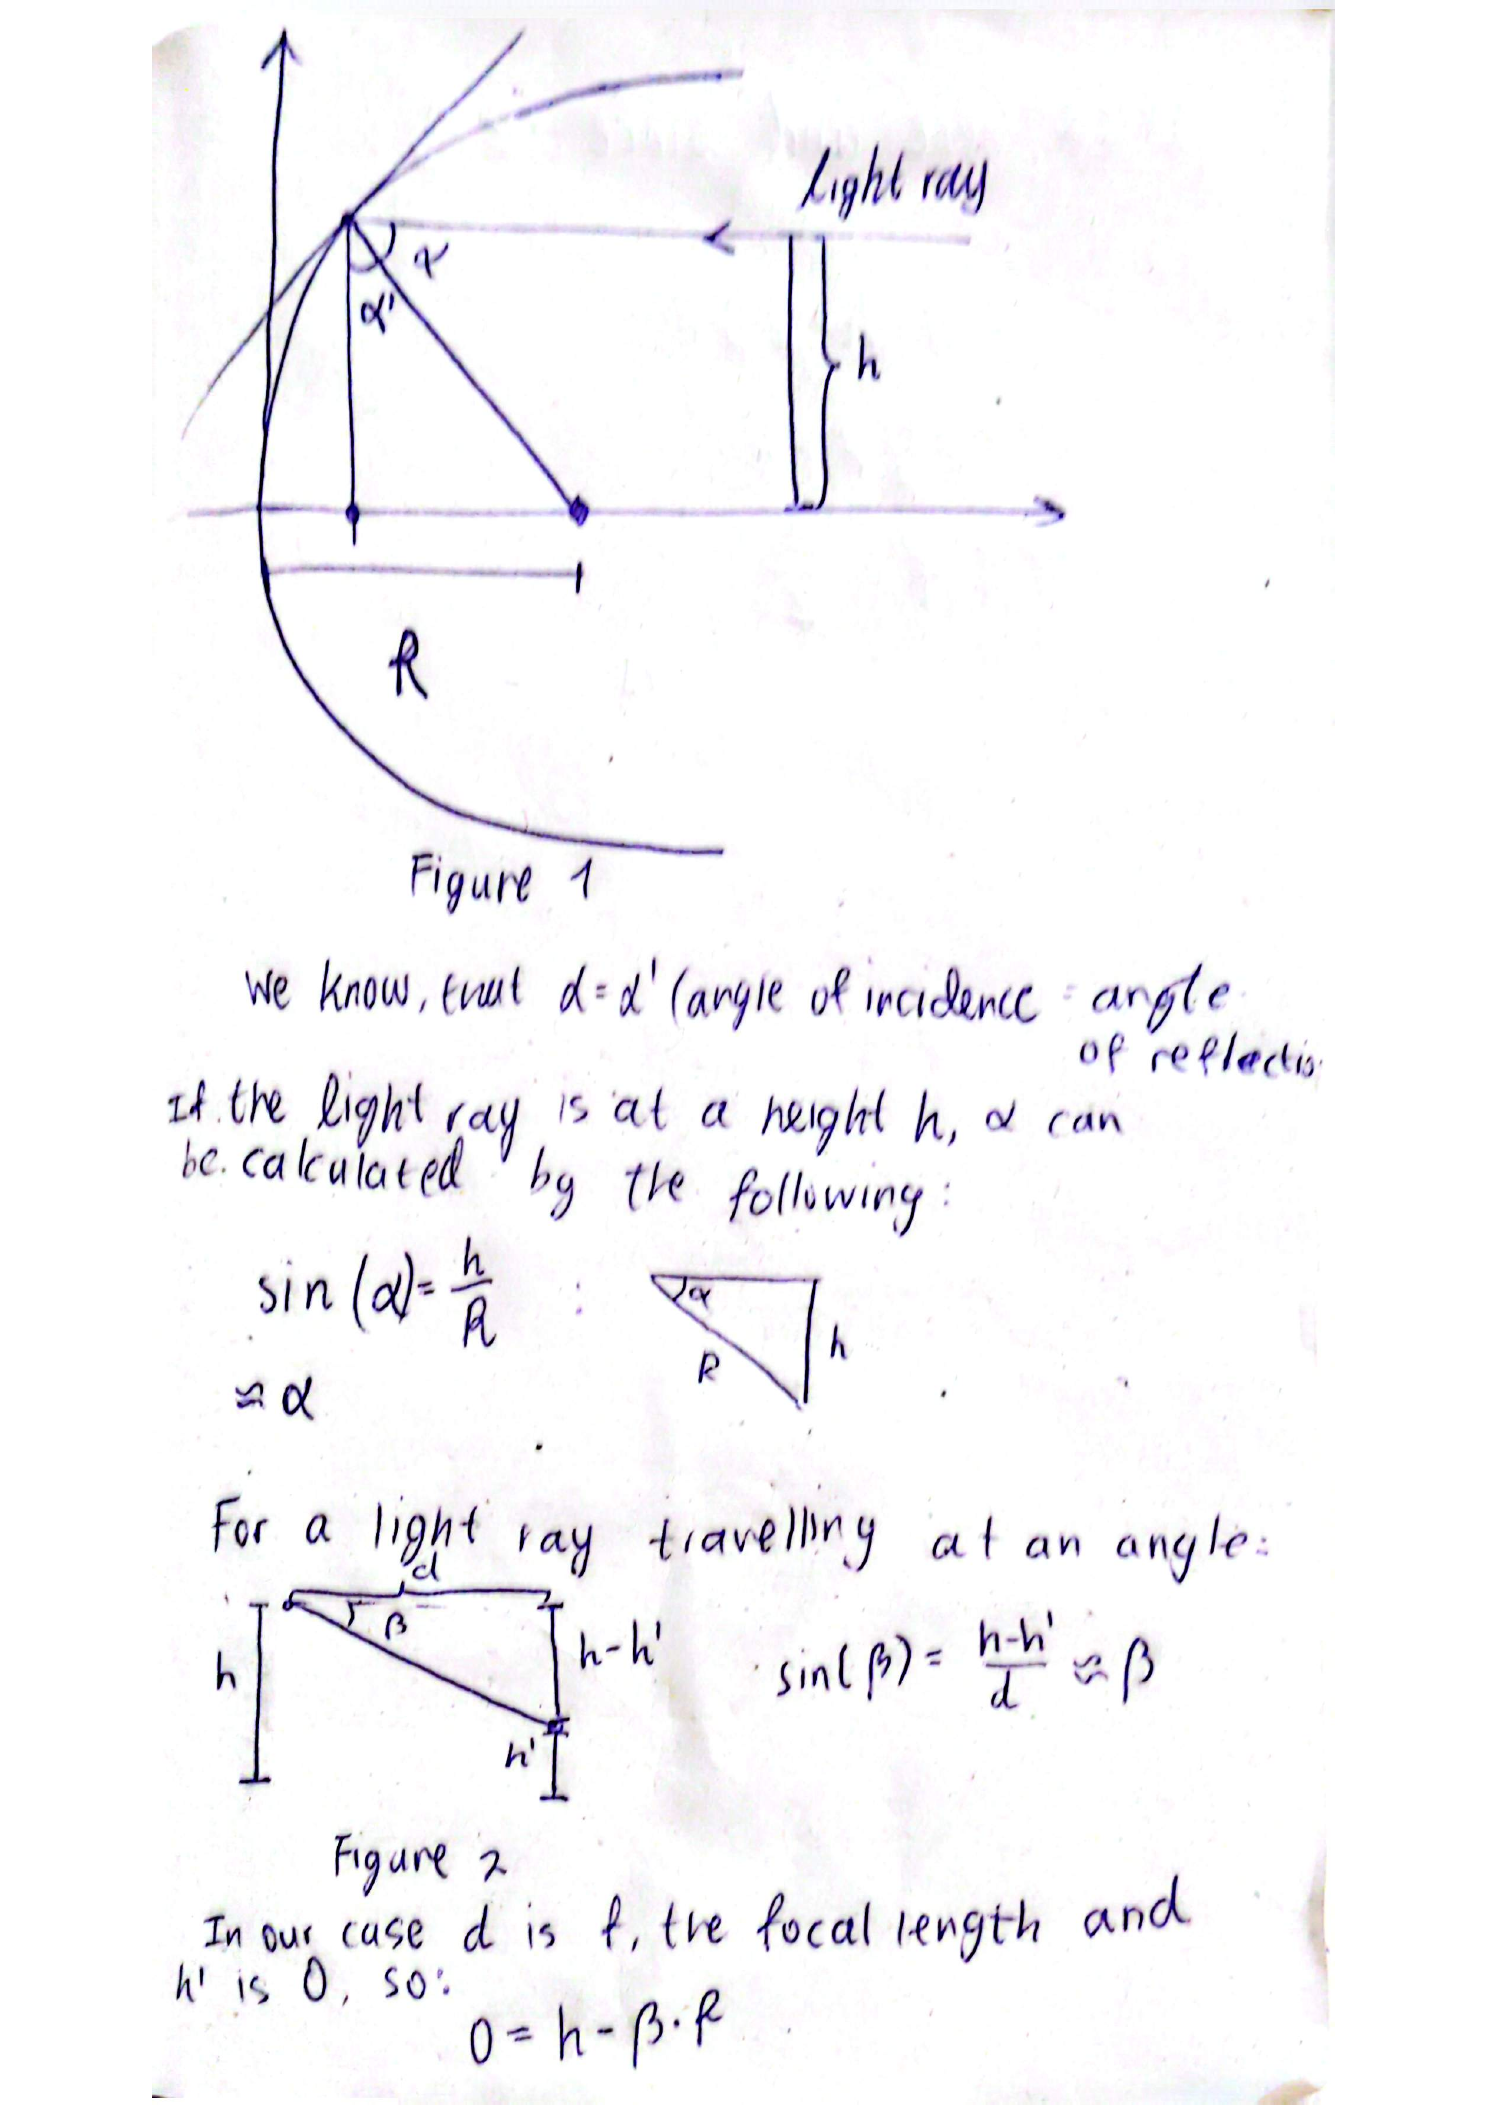 light ray
α
α'
h
R
Figure 1
We know, that α=α' (angle of incidence = angle
of reflectio
If the light ray is at a height h, α can
be calculated by the following:
sin(α)=h/R :
α
R
h
≈α
For a light ray travelling at an angle:
d
β
h
h-h'
h'
sin(β) = (h-h')/d ≈ β
Figure 2
In our case d is f, the focal length and
h' is 0, so:
0 = h - β·f